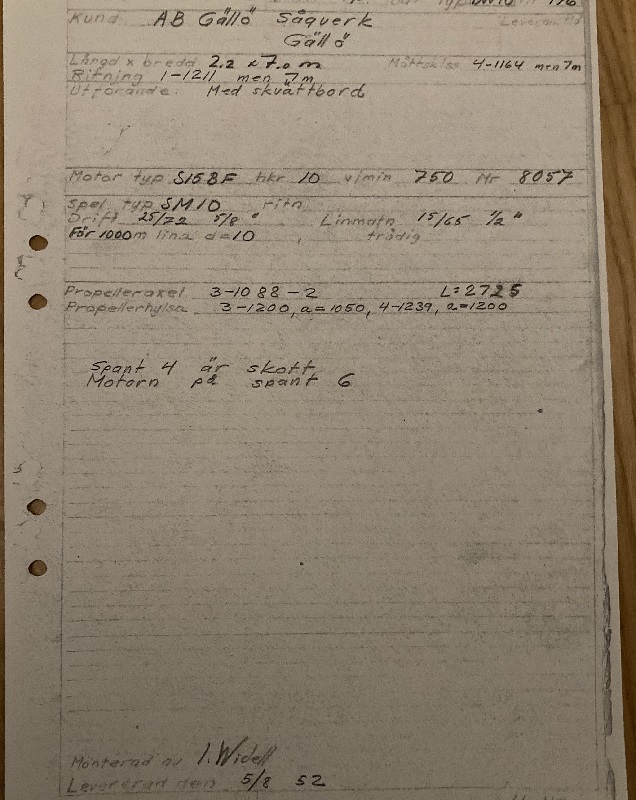 Kund AB Gällö Sågverk Leveranstid
Gällö
Längd x bredd 2.2 x 7.0 m Måttskiss 4-1164 men 7m
Ritning 1-1211 men 7m
Utförande: Med skvättbord
Motor typ S158F hkr 10 v/min 750 Nr 8057
Spel typ SM10 ritn
Drift 25/72 5/8" Linmatn 15/65 1/2"
För 1000m lina d=10 trådig
Propelleraxel 3-1088-2 L=2725
Propellerhylsa 3-1200, a=1050, 4-1239, a=1200
Spant 4 är skott
Motorn på spant 6
Monterad av I. Widell
Levererad den 5/8 52